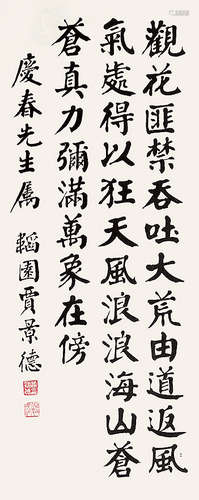 觀花匪禁吞吐大荒由道返風
氣處得以狂天風浪浪海山蒼
蒼真力彌滿萬象在傍
慶春先生属 韜園賈景德